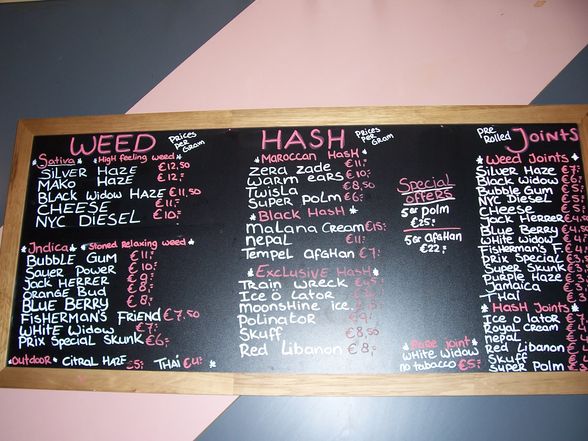 WEED PRICES PER GRAM
Sativa High feeling weed
SILVER HAZE €12,50
MAKO HAZE €12,-
BLACK WIDOW HAZE €11,50
CHEESE €11,-
NYC DIESEL €10,-
Indica Stoned Relaxing weed
BUBBLE GUM €11,-
SOUER POWER €10,-
JACK HERRER €9,-
ORANGE BUD €8,-
BLUE BERRY €8,-
FISHERMAN'S FRIEND €7,50
WHITE WIDOW €7,-
PRIX SPECIAL SKUNK €6,-
OUTDOOR CITRAL HAZE €5,- THAI €4,-
HASH PRICES PER GRAM
MAROCCAN HASH
ZERA ZADE €11,-
WARM EARS €10,-
TWISLA €8,50
SUPER POLM €6,-
BLACK HASH
MALANA CREAM €15,-
NEPAL €11,-
TEMPEL AFGHAN €7,-
EXCLUSIVE HASH
TRAIN WRECK
ICE O LATOR
MOONSHINE ICE
POLINATOR €9,-
SKUFF €8,50
RED LIBANON €8,-
Special OFFERS
5gr POLM
€25,-
5gr AFGHAN
€22,-
RARE JOINT
WHITE WIDOW
NO TABACCO €5,-
PRE ROLLED JOINTS
WEED JOINTS
SILVER HAZE €7,-
BLACK WIDOW €6,-
BUBBLE GUM €5
NYC DIESEL €5
CHEESE €5
JACK HERRER €4,50
BLUE BERRY €4,50
WHITE WIDOW €4
FISHERMAN'S F. €4
PRIX SPECIAL
SUPER SKUNK
PURPLE HAZE
JAMAICA
THAI
HASH JOINTS
ICE O LATER
ROYAL CREAM
NEPAL
RED LIBANON
SKUFF
SUPER POLM